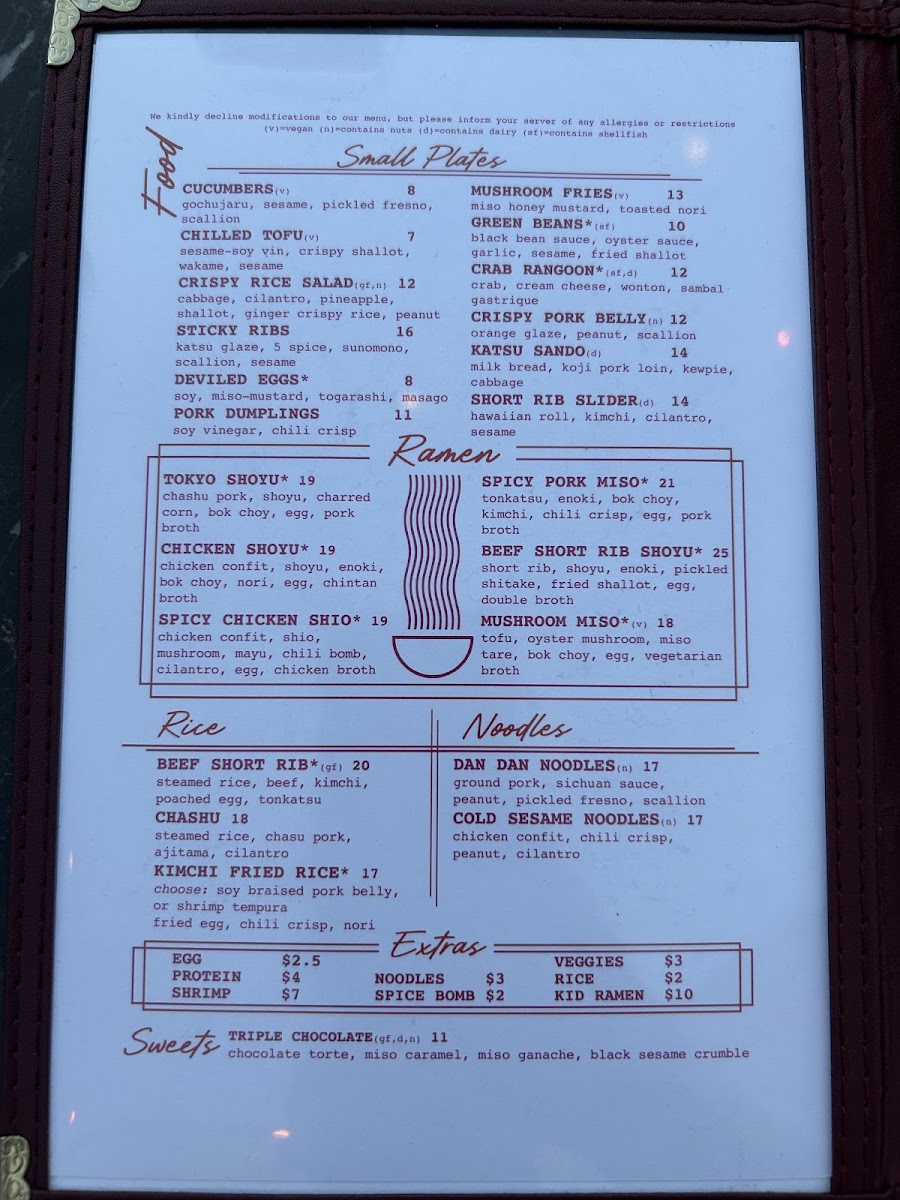 We kindly decline modifications to our menu, but please inform your server of any allergies or restrictions
(v)=vegan (n)=contains nuts (d)=contains dairy (sf)=contains shellfish
Food
Small Plates
CUCUMBERS(v) 8
gochujaru, sesame, pickled fresno,
scallion
CHILLED TOFU(v) 7
sesame-soy vin, crispy shallot,
wakame, sesame
CRISPY RICE SALAD(gf,n) 12
cabbage, cilantro, pineapple,
shallot, ginger crispy rice, peanut
STICKY RIBS 16
katsu glaze, 5 spice, sunomono,
scallion, sesame
DEVILED EGGS* 8
soy, miso-mustard, togarashi, masago
PORK DUMPLINGS 11
soy vinegar, chili crisp
MUSHROOM FRIES(v) 13
miso honey mustard, toasted nori
GREEN BEANS*(sf) 10
black bean sauce, oyster sauce,
garlic, sesame, fried shallot
CRAB RANGOON*(sf,d) 12
crab, cream cheese, wonton, sambal
gastrique
CRISPY PORK BELLY(n) 12
orange glaze, peanut, scallion
KATSU SANDO(d) 14
milk bread, koji pork loin, kewpie,
cabbage
SHORT RIB SLIDER(d) 14
hawaiian roll, kimchi, cilantro,
sesame
Ramen
TOKYO SHOYU* 19
chashu pork, shoyu, charred
corn, bok choy, egg, pork
broth
CHICKEN SHOYU* 19
chicken confit, shoyu, enoki,
bok choy, nori, egg, chintan
broth
SPICY CHICKEN SHIO* 19
chicken confit, shio,
mushroom, mayu, chili bomb,
cilantro, egg, chicken broth
SPICY PORK MISO* 21
tonkatsu, enoki, bok choy,
kimchi, chili crisp, egg, pork
broth
BEEF SHORT RIB SHOYU* 25
short rib, shoyu, enoki, pickled
shitake, fried shallot, egg,
double broth
MUSHROOM MISO*(v) 18
tofu, oyster mushroom, miso
tare, bok choy, egg, vegetarian
broth
Rice
BEEF SHORT RIB*(gf) 20
steamed rice, beef, kimchi,
poached egg, tonkatsu
CHASHU 18
steamed rice, chasu pork,
ajitama, cilantro
KIMCHI FRIED RICE* 17
choose: soy braised pork belly,
or shrimp tempura
fried egg, chili crisp, nori
Noodles
DAN DAN NOODLES(n) 17
ground pork, sichuan sauce,
peanut, pickled fresno, scallion
COLD SESAME NOODLES(n) 17
chicken confit, chili crisp,
peanut, cilantro
Extras
EGG $2.5
PROTEIN $4
SHRIMP $7
NOODLES $3
SPICE BOMB $2
VEGGIES $3
RICE $2
KID RAMEN $10
Sweets
TRIPLE CHOCOLATE(gf,d,n) 11
chocolate torte, miso caramel, miso ganache, black sesame crumble